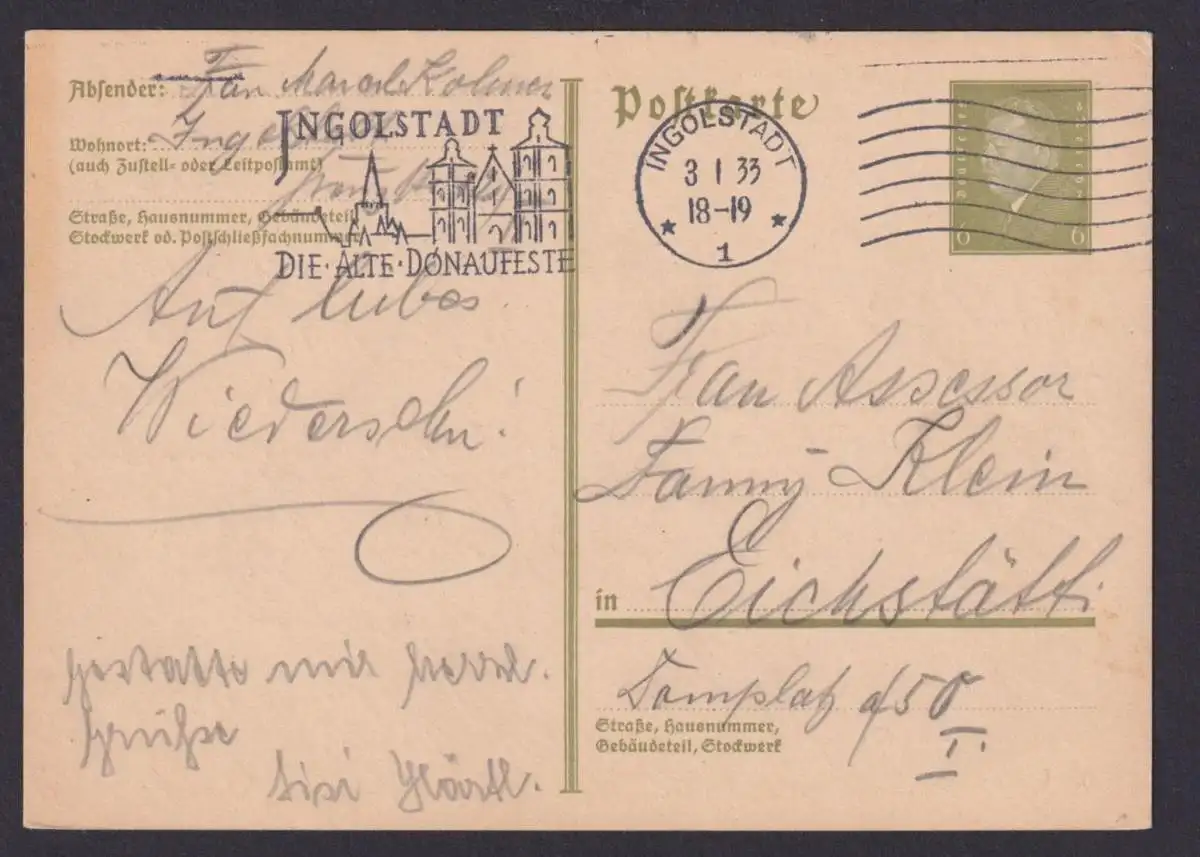 Absender: Frau
Wohnort:
(auch Zustell- oder Leitpostamt)
Straße, Hausnummer, Gebäudeteil
Stockwerk od. Postschließfachnummer
INGOLSTADT
DIE·ALTE·DONAUFESTE
Auf liebes
Wiedersehn!
gestatte mir herzl.
Grüße
Sisi Härtl.
Postkarte
INGOLSTADT
3 1 33
18-19
1
Deutsches Reich
6 6
Frau Assessor
Fanny Klein
in Eichstätt.
Domplatz
I.
Straße, Hausnummer,
Gebäudeteil, Stockwerk